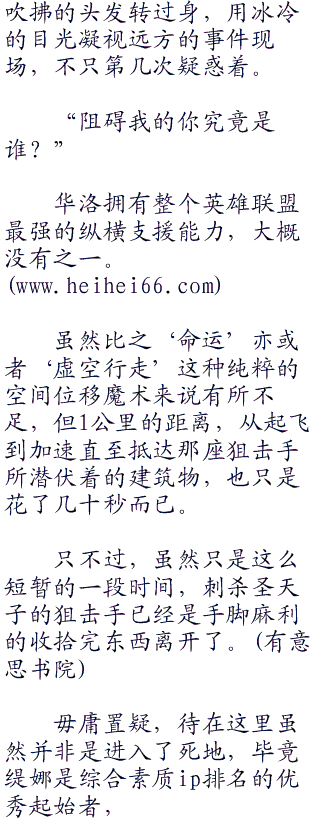 吹拂的头发转过身，用冰冷
的目光凝视远方的事件现
场，不只第几次疑惑着。
“阻碍我的你究竟是
谁？”
华洛拥有整个英雄联盟
最强的纵横支援能力，大概
没有之一。
(www.heihei66.com)
虽然比之‘命运’亦或
者‘虚空行走’这种纯粹的
空间位移魔术来说有所不
足，但1公里的距离，从起飞
到加速直至抵达那座狙击手
所潜伏着的建筑物，也只是
花了几十秒而已。
只不过，虽然只是这么
短暂的一段时间，刺杀圣天
子的狙击手已经是手脚麻利
的收拾完东西离开了。(有意
思书院)
毋庸置疑，待在这里虽
然并非是进入了死地，毕竟
缇娜是综合素质ip排名的优
秀起始者，